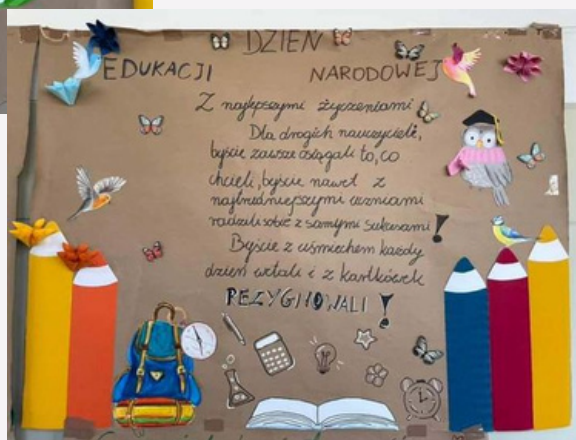 DZIEŃ
EDUKACJI NARODOWEJ
Z najlepszymi życzeniami
Dla drogich nauczycieli,
byście zawsze osiągali to, co
chcieli, byście nawet z
najbrudniejszymi uczniami
radzili sobie z samymi sukcesami!
Byście z uśmiechem każdy
dzień witali i z kartkówek
REZYGNOWALI!